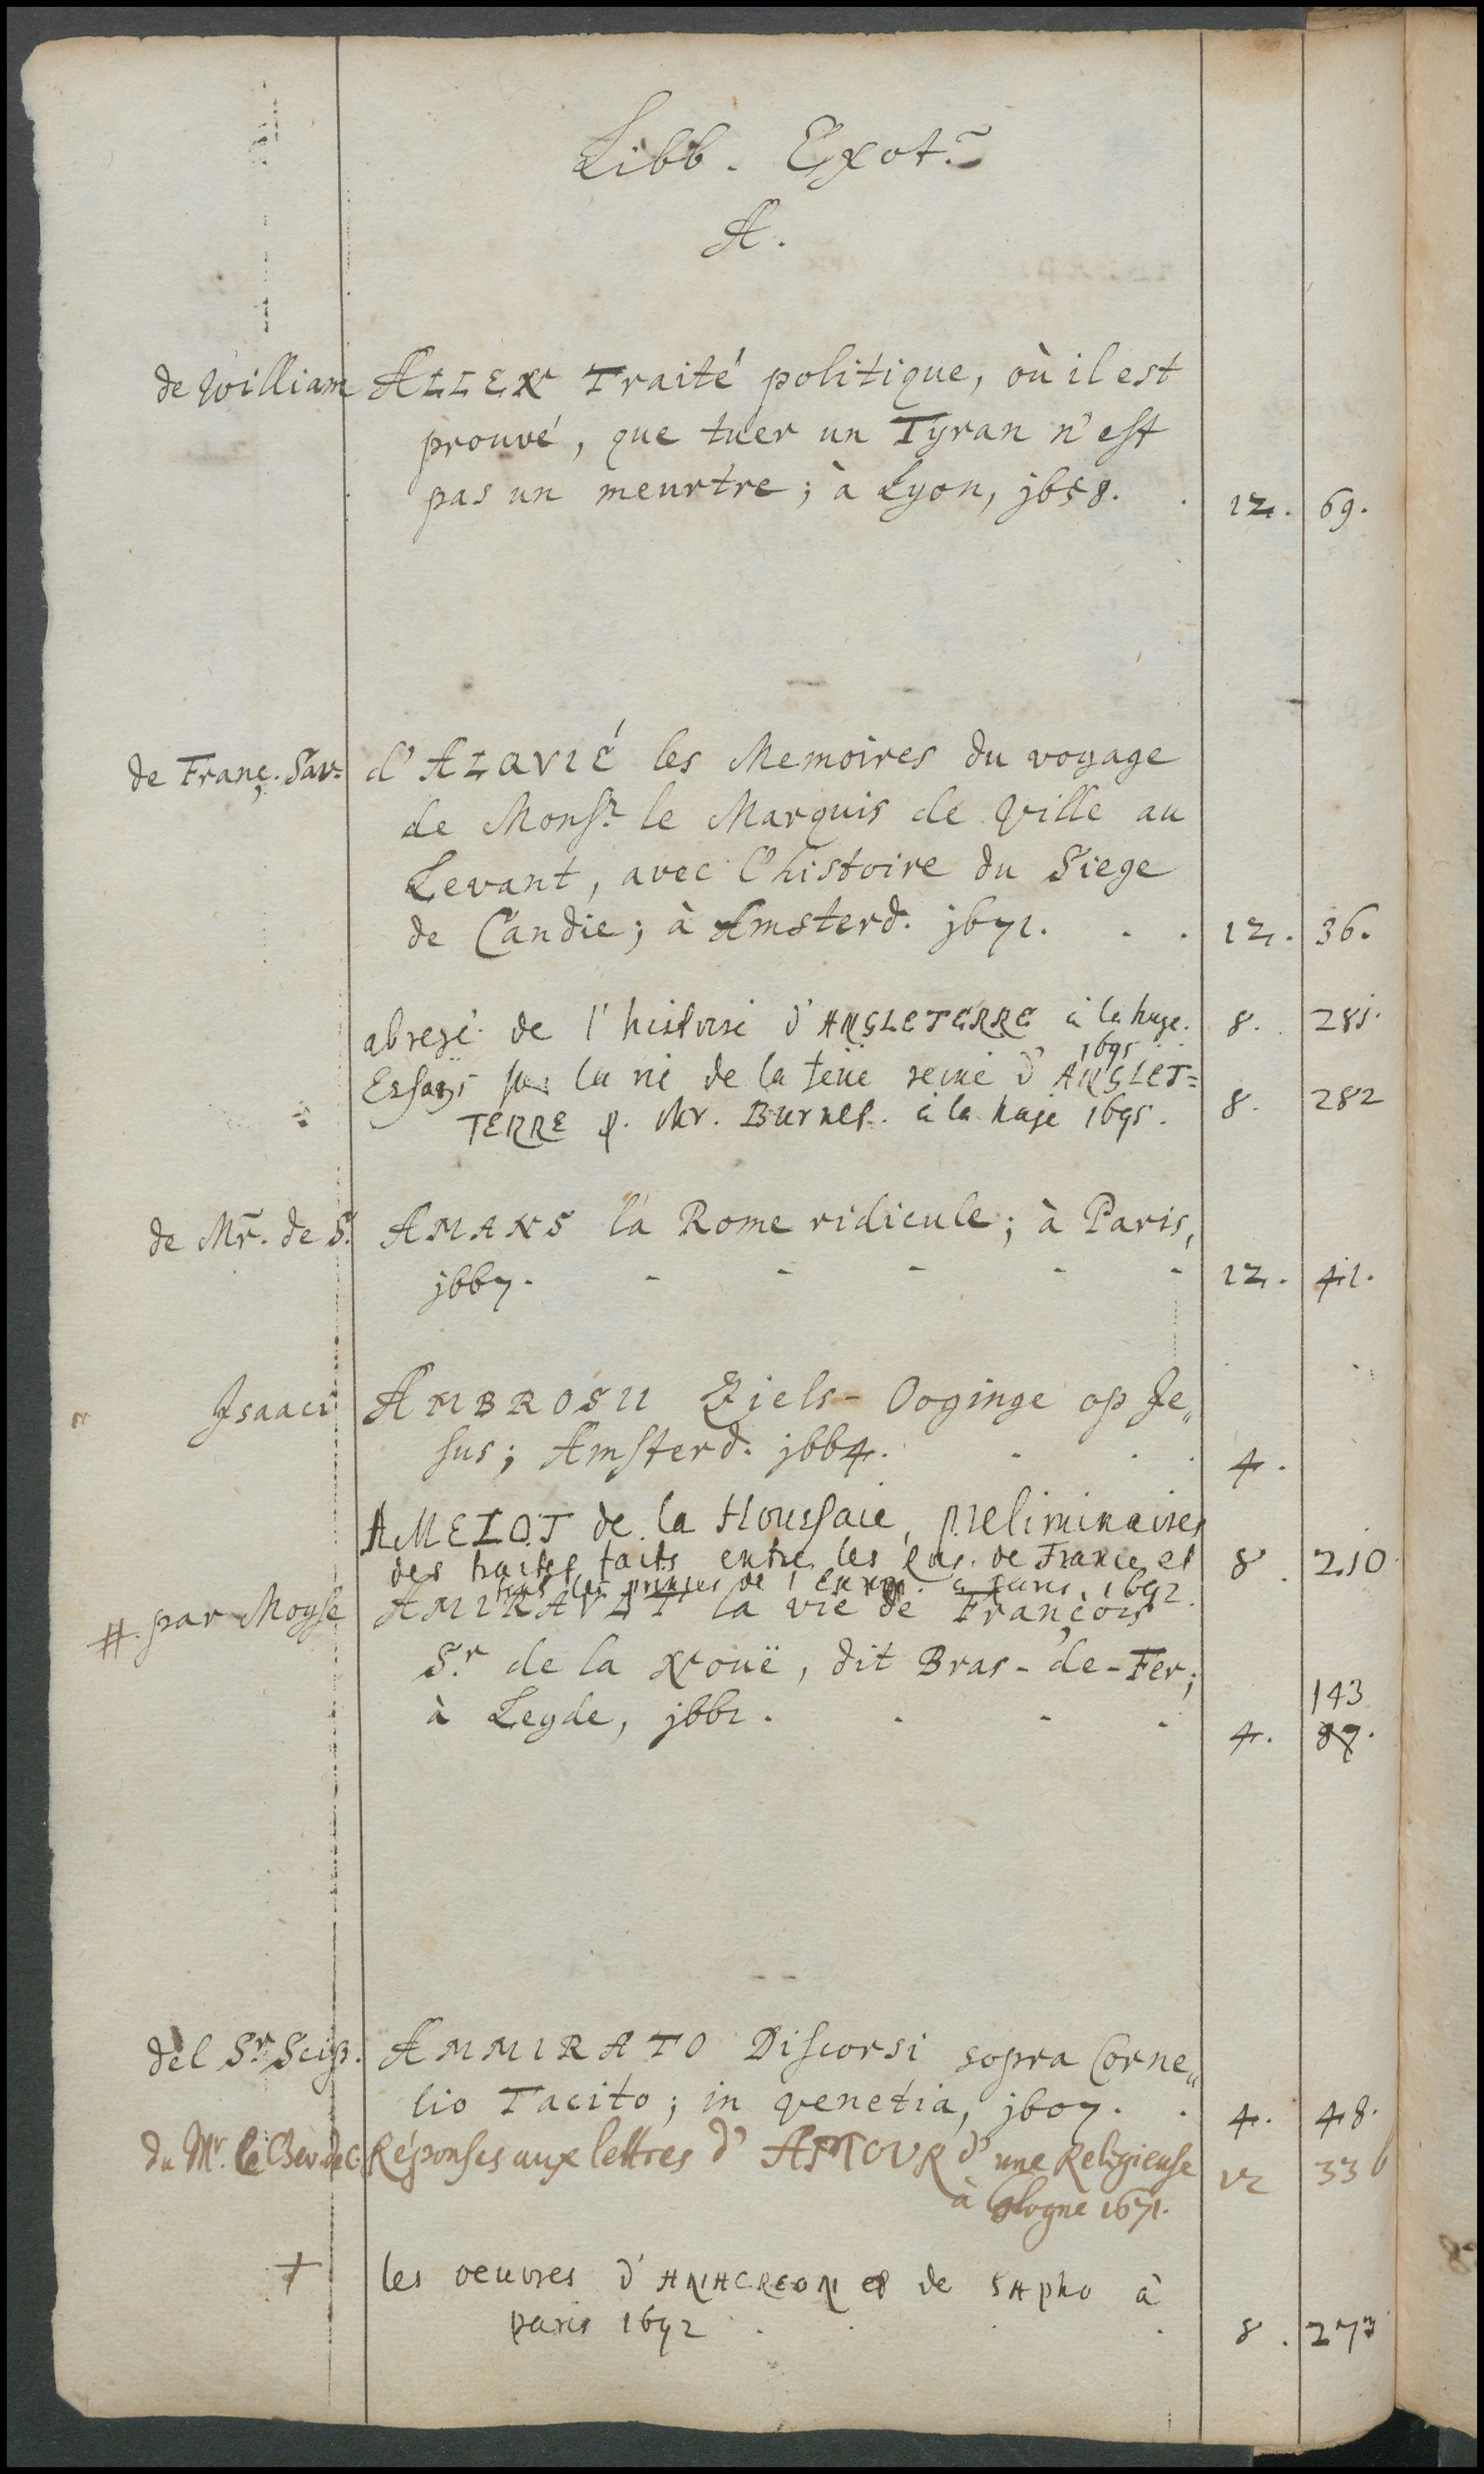 Libb. Exot.
A.
de William ALLEN Traité politique, où il est
prouvé, que tuer un Tyran n'est
pas un meurtre; à Lyon, j658. . 12. 69.
de Franç. Sav. d'ALQVIÉ les Memoires du voyage
de Monsr. le Marquis de Ville au
Levant, avec l'histoire du Siege
de Candie; à Amsterd. j671. . . 12. 36.
abregé de l'histoire d'ANGLETERRE à la haye. 8. 281.
1695
Essays sur la vie de la feüe reine d'ANGLET=
TERRE p. Mr. Burnet. à la haye 1695. 8. 282
de Mr. de S. AMANS la Rome ridicule; à Paris,
j667. - - - - - 12. 41.
Isaaci AMBROSII Ziels-Ooginge op Je„
sus; Amsterd. j664. . . . 4.
AMELOT de la Houssaie, preliminaires
des traités faits entre les Rois de France et 8. 210
tous les princes de l'Europe. à Paris. 1692.
#. par Moyse AMIRAVLT la vie de François
Sr. de la Nouë, dit Bras-de-Fer;
143
à Leyde, j661. - - - 4. 87.
del Sr. Scip. AMMIRATO Discorsi sopra Corne„
lio Tacito; in Venetia, j607. . . 4. 48.
du Mr. le Chev. de C. Réponses aux lettres d'AMOUR d'une Religieuse 12 336
à Cologne 1671.
+ les oeuvres d'ANACREON et de SApho à
paris 1692 . . . . 8. 273